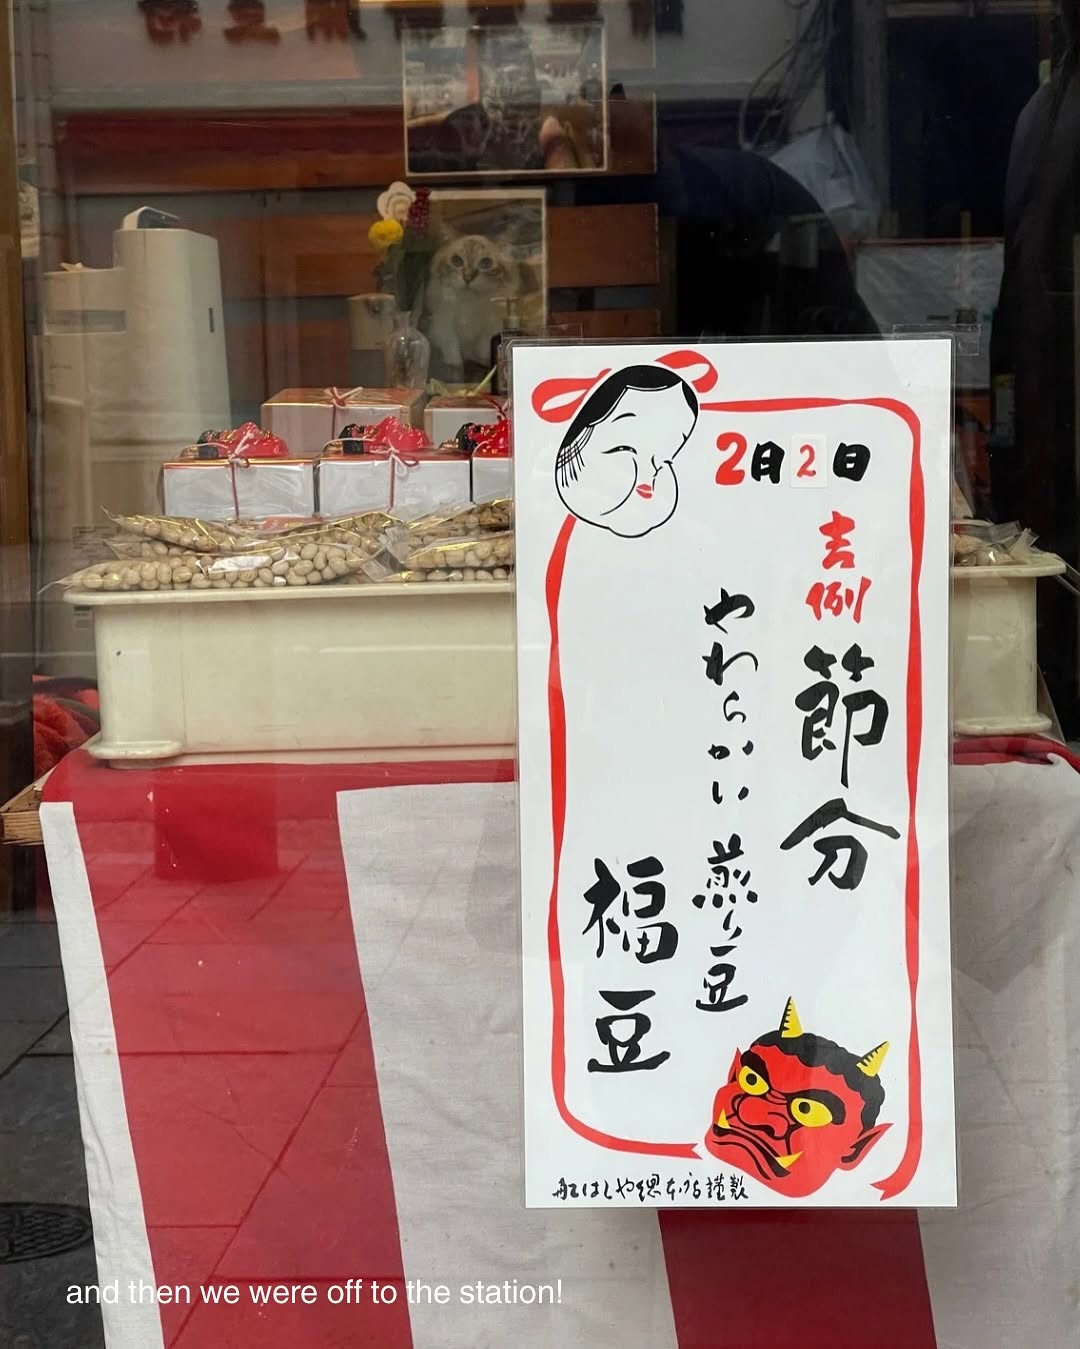 2月2日
吉例
節分
やわらかい煎り豆
福豆
船はしや總本店謹製
and then we were off to the station!